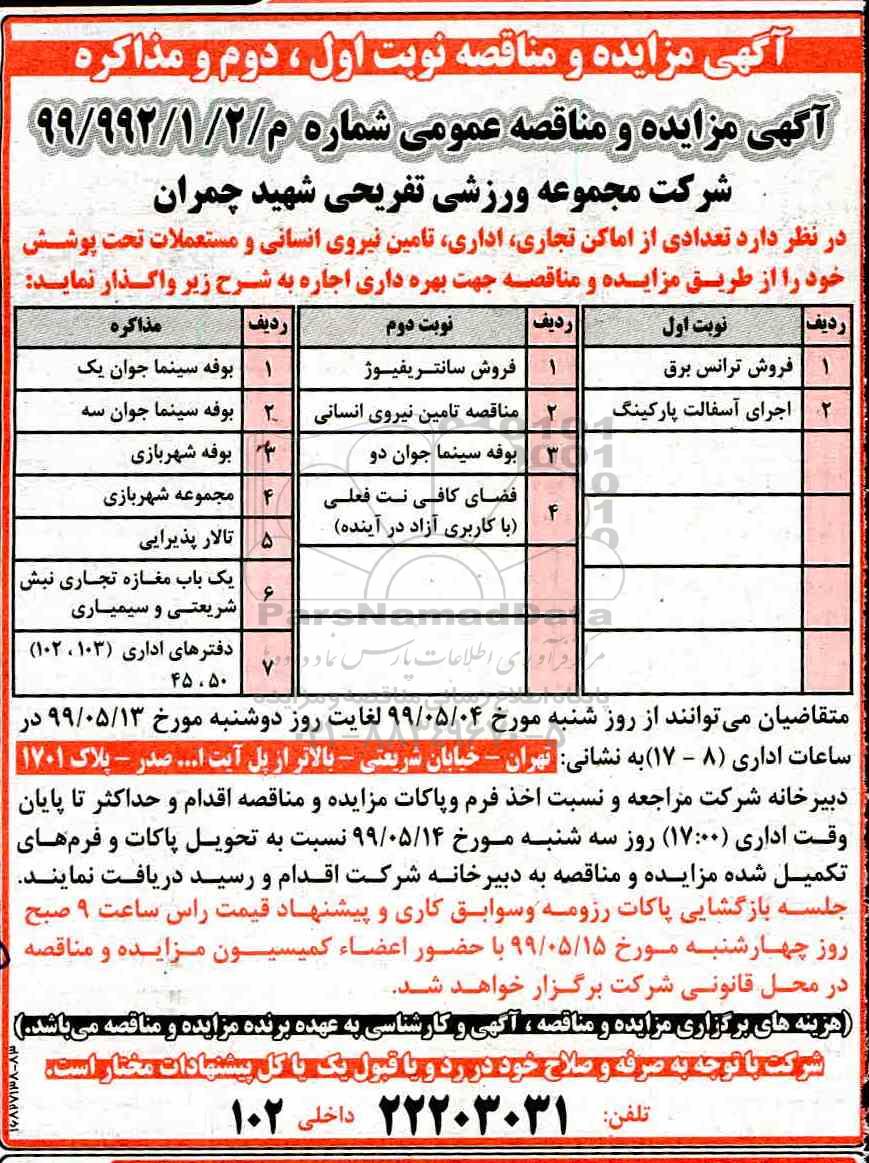 آگهی مزایده و مناقصه نوبت اول ، دوم و مذاکره
آگهی مزایده و مناقصه عمومی شماره م/۲/ ۹۹/۹۹۲/۱
شرکت مجموعه ورزشی تفریحی شهید چمران
در نظر دارد تعدادی از اماکن تجاری، اداری، تامین نیروی انسانی و مستعملات تحت پوشش
خود را از طریق مزایده و مناقصه جهت بهره داری اجاره به شرح زیر واگذار نماید:
ردیف نوبت اول
۱ فروش ترانس برق
۲ اجرای آسفالت پارکینگ
ردیف نوبت دوم
۱ فروش سانتریفیوژ
۲ مناقصه تامین نیروی انسانی
۳ بوفه سینما جوان دو
۴ فضای کافی نت فعلی
(با کاربری آزاد در آینده)
ردیف مذاکره
۱ بوفه سینما جوان یک
۲ بوفه سینما جوان سه
۳ بوفه شهربازی
۴ مجموعه شهربازی
۵ تالار پذیرایی
۶ یک باب مغازه تجاری نبش
شریعتی و سیمیاری
۷ دفترهای اداری (۱۰۳ ، ۱۰۲)
۵۰ ، ۴۵
ParsNamadData
مرکز فرآوری اطلاعات پارس نماد داده ها
پایگاه اطلاع رسانی مناقصه و مزایده
۰۲۱-۸۸۳۴۹۶۷۰-۵
متقاضیان می‌توانند از روز شنبه مورخ ۹۹/۰۵/۰۴ لغایت روز دوشنبه مورخ ۹۹/۰۵/۱۳ در
ساعات اداری (۸ - ۱۷)به نشانی: تهران - خیابان شریعتی - بالاتر از پل آیت ا... صدر - پلاک ۱۷۰۱
دبیرخانه شرکت مراجعه و نسبت اخذ فرم وپاکات مزایده و مناقصه اقدام و حداکثر تا پایان
وقت اداری (۱۷:۰۰) روز سه شنبه مورخ ۹۹/۰۵/۱۴ نسبت به تحویل پاکات و فرم‌های
تکمیل شده مزایده و مناقصه به دبیرخانه شرکت اقدام و رسید دریافت نمایند.
جلسه بازگشایی پاکات رزومه وسوابق کاری و پیشنهاد قیمت راس ساعت ۹ صبح
روز چهارشنبه مورخ ۹۹/۰۵/۱۵ با حضور اعضاء کمیسیون مزایده و مناقصه
در محل قانونی شرکت برگزار خواهد شد.
(هزینه های برگزاری مزایده و مناقصه ، آگهی و کارشناسی به عهده برنده مزایده و مناقصه می‌باشد.)
شرکت با توجه به صرفه و صلاح خود در رد و یا قبول یک یا کل پیشنهادات مختار است.
تلفن: ۲۲۲۰۳۰۳۱ داخلی ۱۰۲